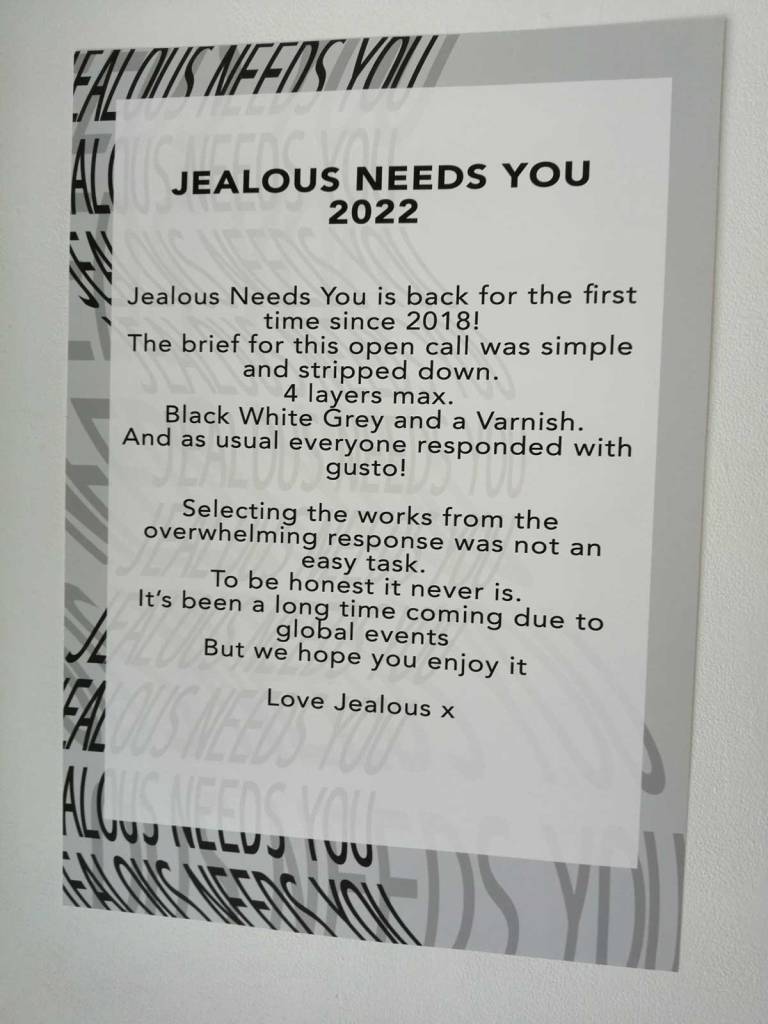 JEALOUS NEEDS YOU
JEALOUS NEEDS YOU
2022
Jealous Needs You is back for the first
time since 2018!
The brief for this open call was simple
and stripped down.
4 layers max.
Black White Grey and a Varnish.
And as usual everyone responded with
gusto!
Selecting the works from the
overwhelming response was not an
easy task.
To be honest it never is.
It's been a long time coming due to
global events
But we hope you enjoy it
Love Jealous x
JEALOUS NEEDS YOU
JEALOUS NEEDS YOU